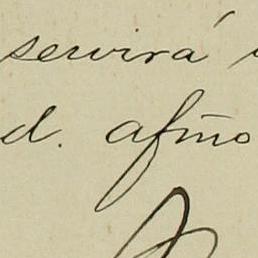 servirá
d. afmo